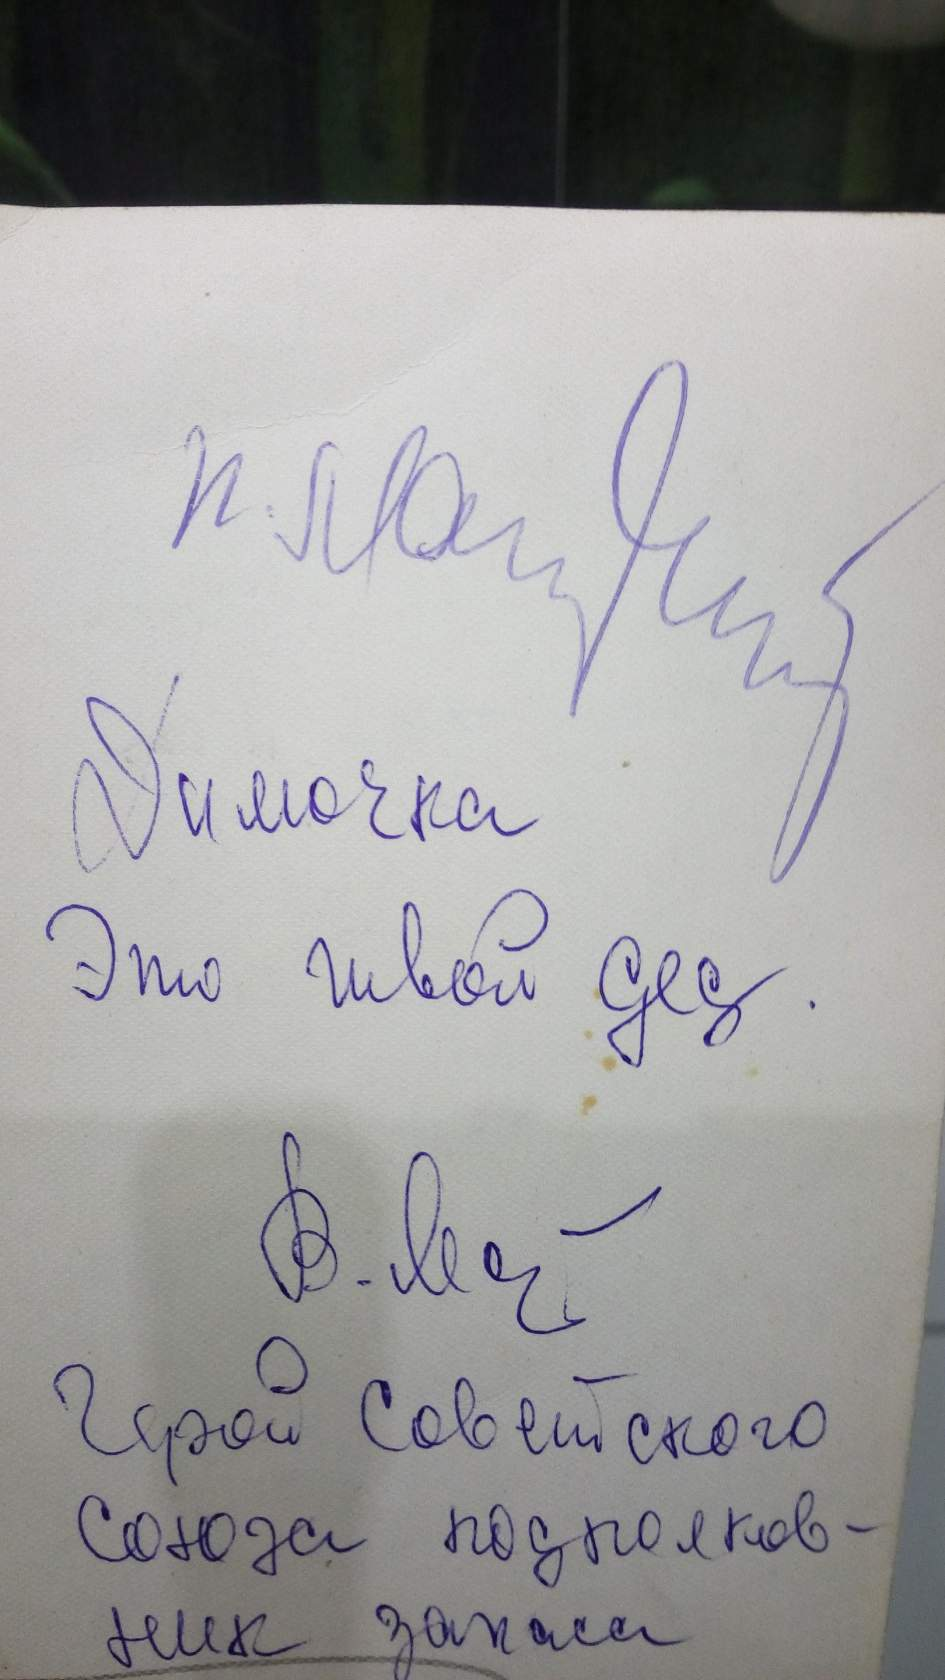 Димочка
Это твой дед.
В.
Герой Советского
Союза подполков-
ник запаса